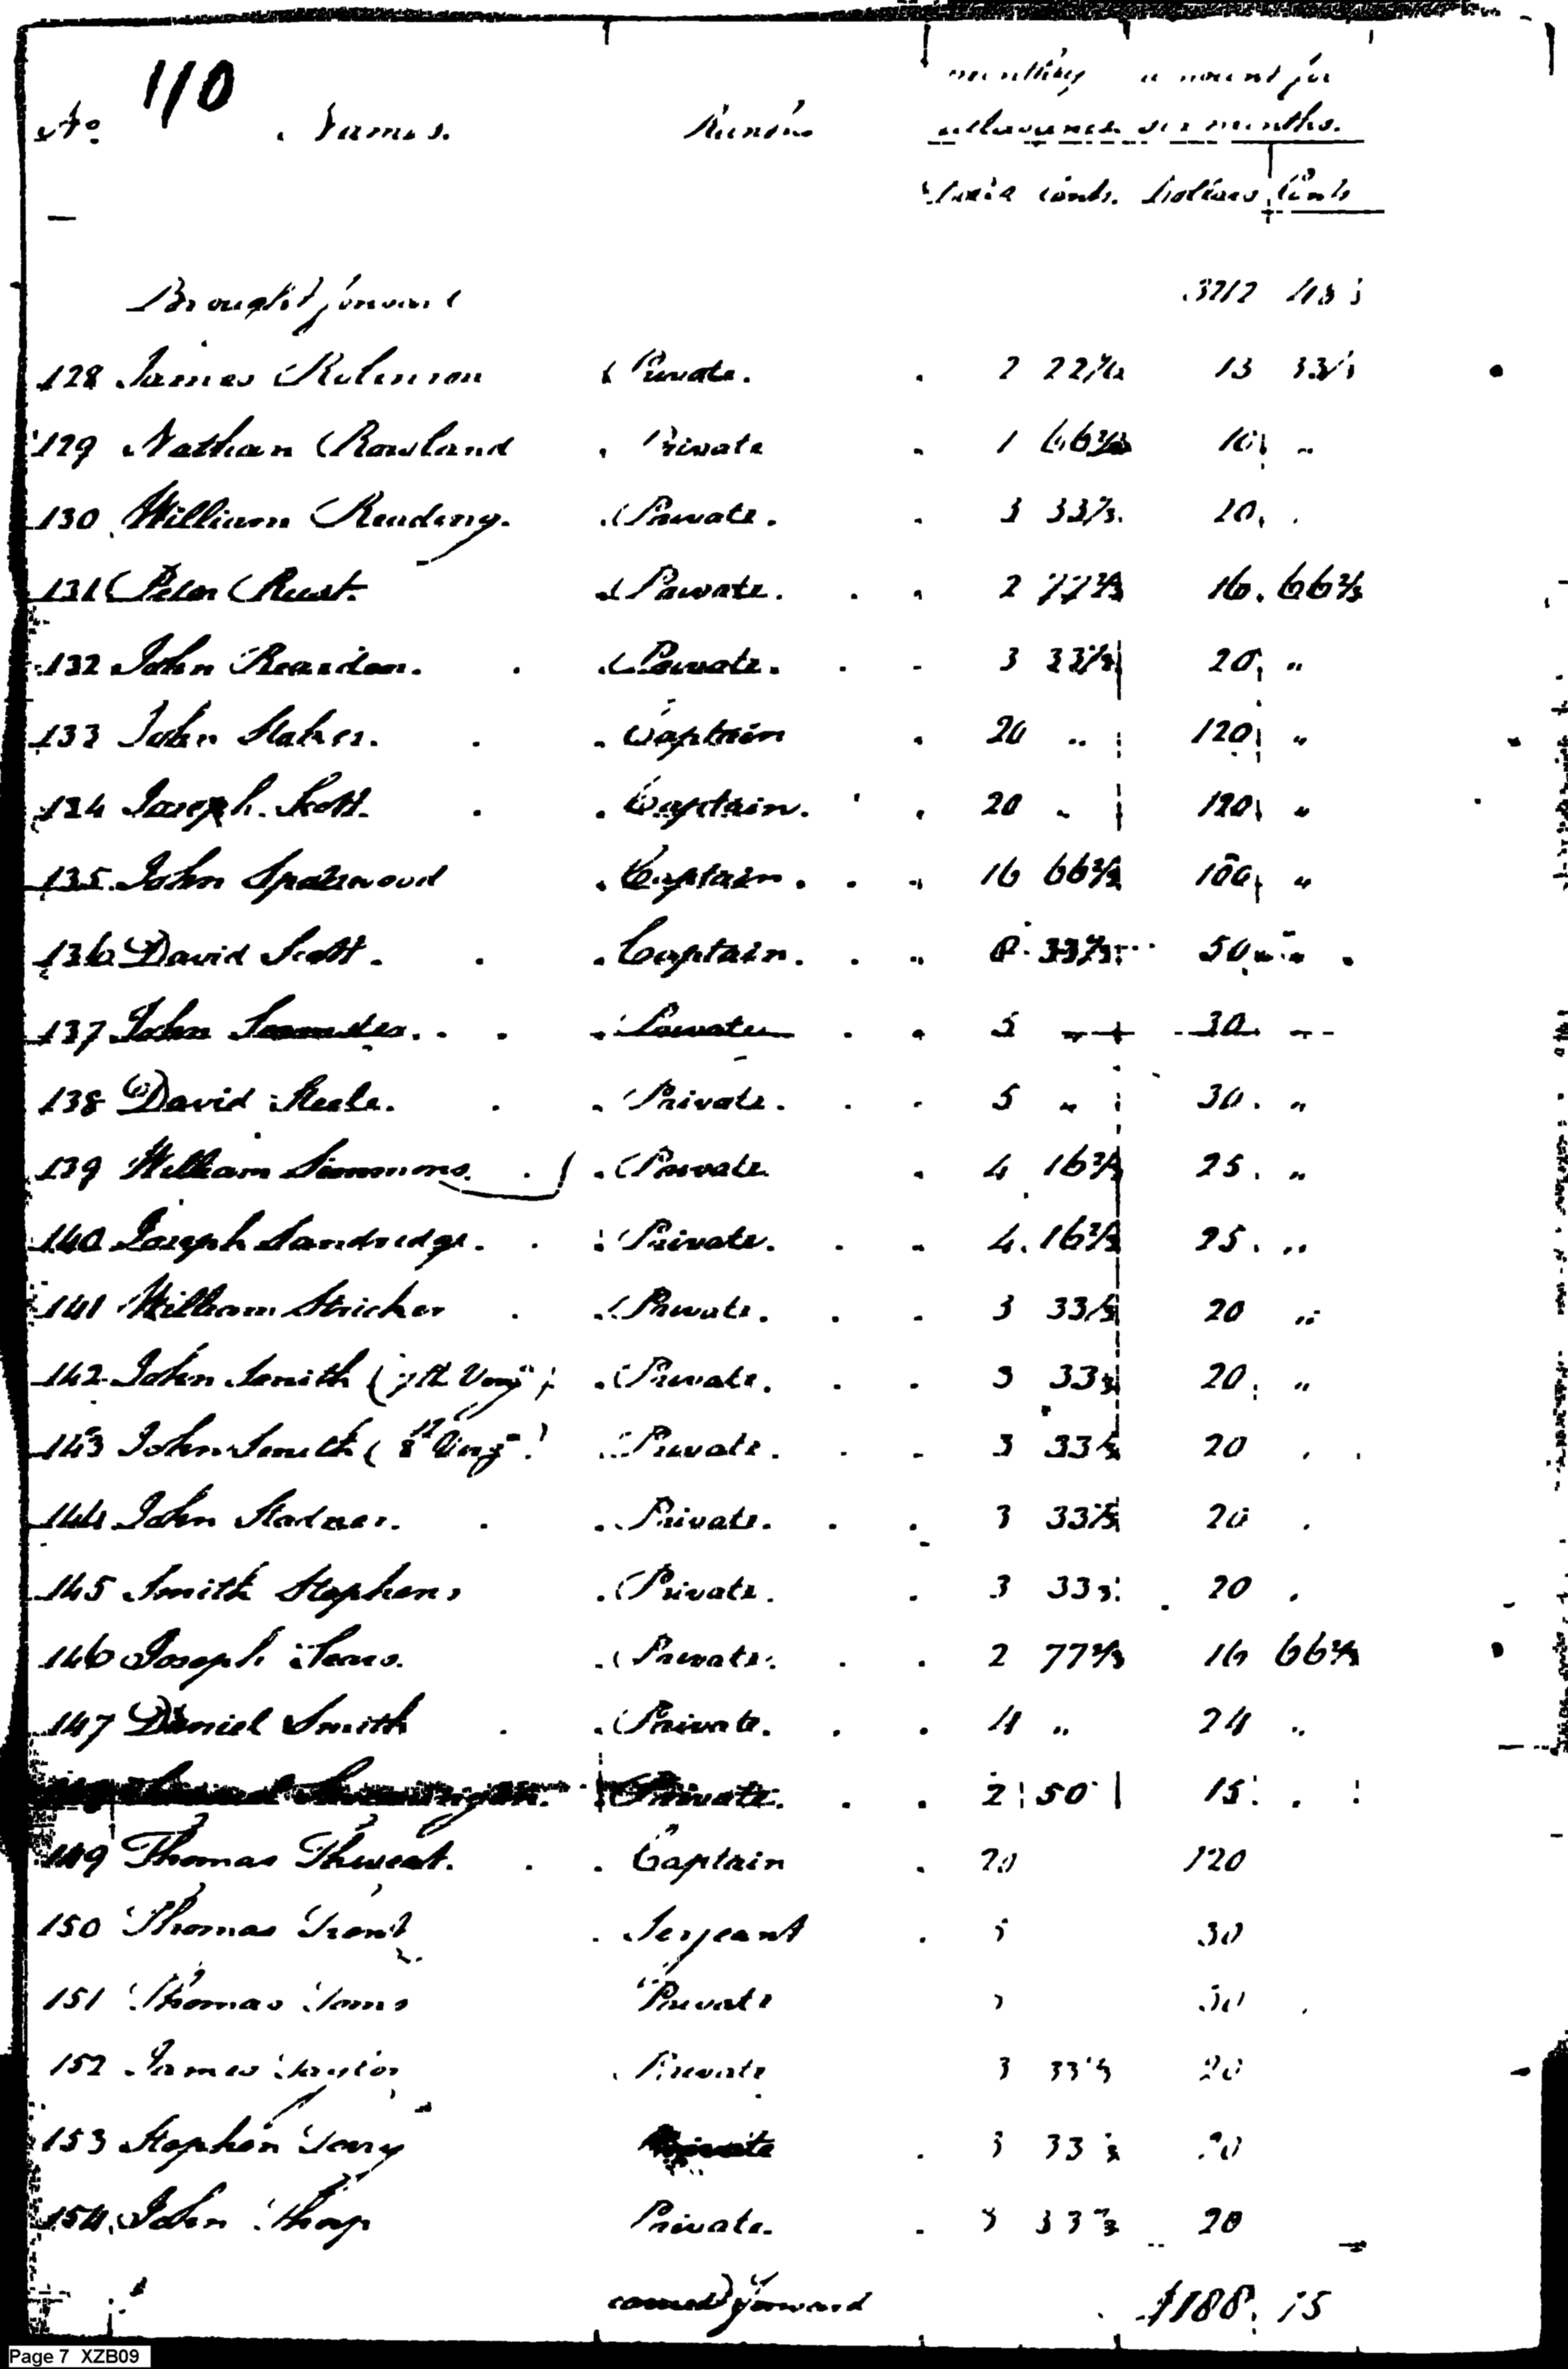 110
monthly amount for
No. Names. Rank allowance six months.
cents. Dollars Cents
Brought forward 3212
128 James Robinson Private. 2 22 13 33 1/3
129 Nathan Rowland Private 1 66 2/3 10 "
130 William Reading. Private. 3 33 1/3 20
131 Peter Rust. Private. 2 77 2/3 16. 66 2/3
132 John Reardon. Private. 3 33 1/3 20 "
133 John Stokes. Captain 20 " 120 "
134 Joseph Scott. Captain. 20 " 120 "
135 John Spotswood Captain. 16 66 2/3 100 "
136 David Scott. Captain. 8. 33 1/3 50 "
137 John Private 5 30
138 David Steele. Private. 5 " 30. "
139 William Simmons. Private 4 16 2/3 25. "
140 Joseph Sandridge. Private. 4. 16 2/3 25. "
141 William Stricker Private. 3 33 1/3 20 "
142 John Smith (7th Virg) Private. 3 33 1/3 20 "
143 John Smith (8th Virg) Private. 3 33 1/3 20
144 John Stadner. Private. 3 33 1/3 20
145 Smith Stephens Private. 3 33 1/3 20
146 Joseph Sears. Private. 2 77 2/3 16 66 2/3
147 Daniel Smith Private. 4 " 24 "
Private. 2 50 15
149 Thomas Thweat. Captain 20 120
150 Thomas Trent Serjeant 5 30
151 Thomas Toms Private 5 30
152 James Taylor Private 3 33 1/3 20
153 Stephen Terry Private 3 33 1/3 20
154. John Thorp Private. 3 33 1/3 20
carried forward 4188. 15
Page 7 XZB09